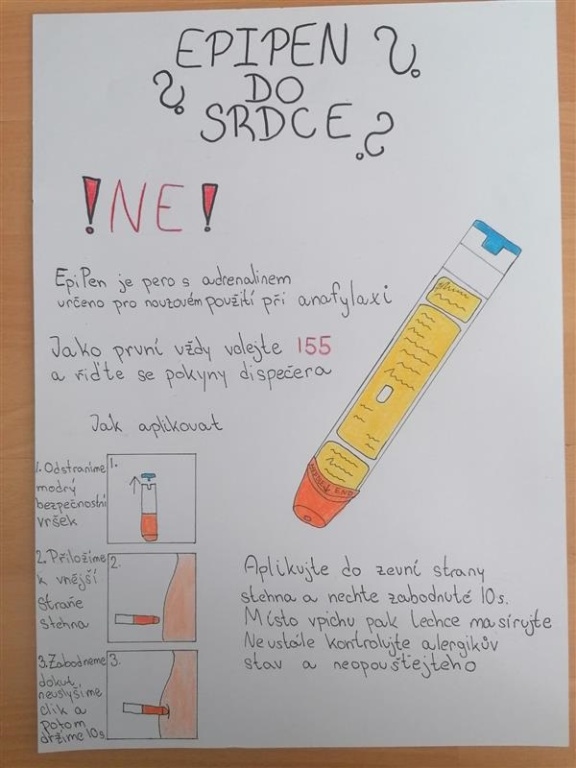 EPIPEN ?
? DO
SRDCE ?
! NE !
EpiPen je pero s adrenalinem
určeno pro nouzovém použití při anafylaxi
Jako první vždy volejte 155
a řiďte se pokyny dispečera
Jak aplikovat
1. Odstraníme
modrý
bezpečnostní
vršek
1.
2. Přiložíme
k vnější
straňe
stehna
2.
3. Zabodneme
dokut
neuslyšíme
clik a
potom
držíme 10s.
3.
Aplikujte do zevní strany
stehna a nechte zabodnuté 10s.
Místo vpichu pak lehce masírujte
Neustále kontrolujte alergikův
stav a neopouštějteho